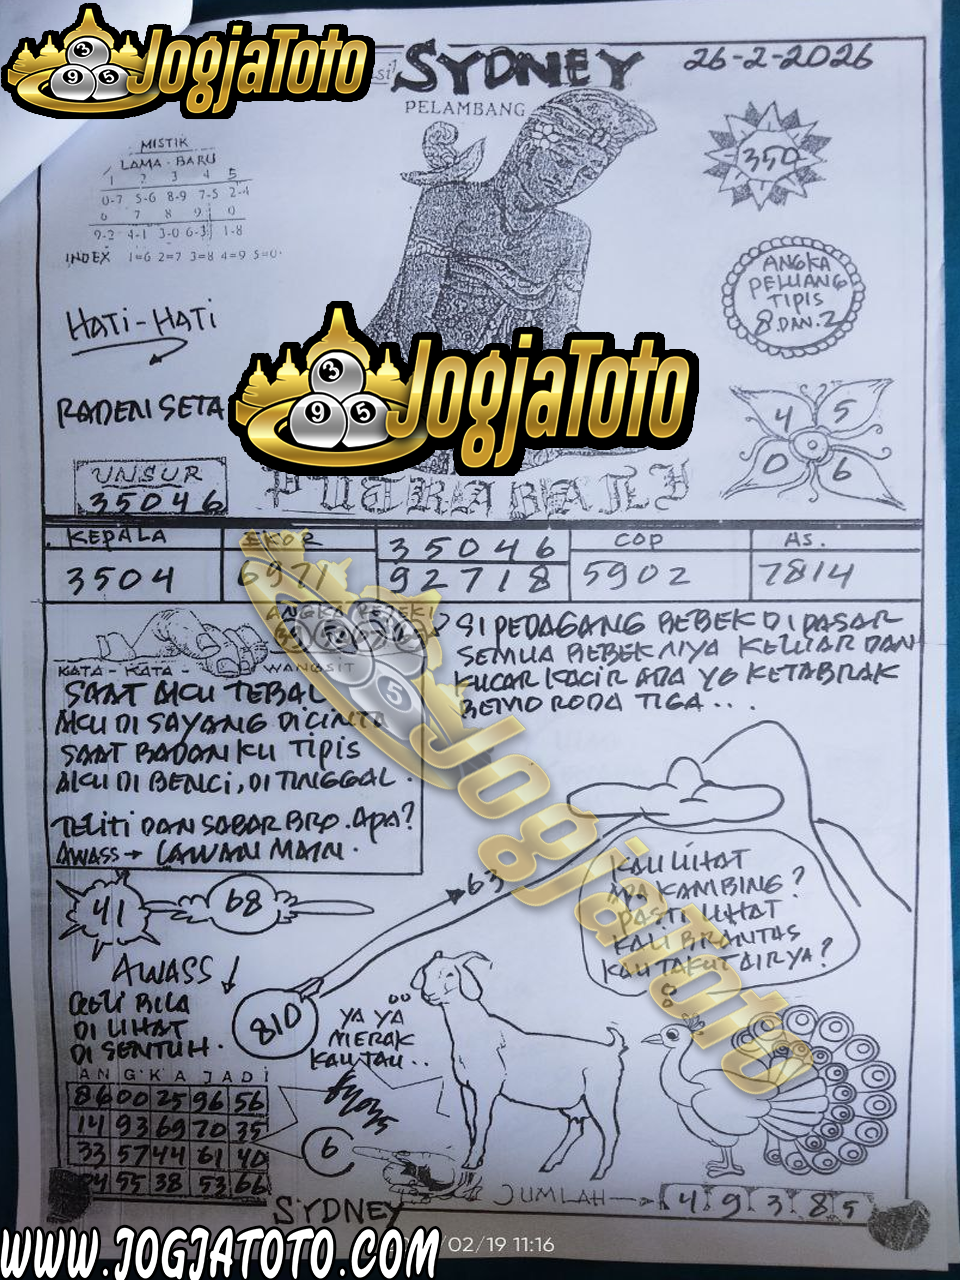 JogjaToto
SYDNEY
26-2-2026
PELAMBANG
MISTIK
LAMA - BARU
1 2 3 4 5
0-7 5-6 8-9 7-5 2-4
6 7 8 9 0
9-2 4-1 3-0 6-3 1-8
INDEX 1=6 2=7 3=8 4=9 5=0
350
ANGKA
PELUANG
TIPIS
8 DAN. 2
HATI-HATI
RADEN SETA
JogjaToto
4 5
0 6
UNSUR
35046
PUTRA BALI
KEPALA
EKOR
35046
COP
AS.
3504
6971
92718
5902
7814
ANGKA REJEKI
KATA - KATA - WANGSIT
SAAT AKU TEBAL
AKU DI SAYANG DI CINTA
SAAT BADANKU TIPIS
AKU DI BENCI, DI TINGGAL.
TELITI DAN SABAR BRO. APA?
AWASS → LAWAN MAIN.
SI PEDAGANG BEBEK DI PASAR
SEMUA BEBEK NYA KELUAR DAN
KUCAR KACIR ADA YG KETABRAK
BEMO RODA TIGA...
JogjaToto
KAU LIHAT
APA KAMBING?
PASTI LIHAT
KALI BRANTAS
KAU TAKUT AIR YA?
63
41
68
AWASS
GELI BILA
DI LIHAT
DI SENTUH.
810
YA YA
MERAK
KAU TAU..
ANGKA JADI
86 00 25 96 56
14 93 69 70 35
33 57 44 61 40
04 55 38 53 66
6
SYDNEY
JUMLAH → 4 9 3 8 5
/02/19 11:16
WWW.JOGJATOTO.COM